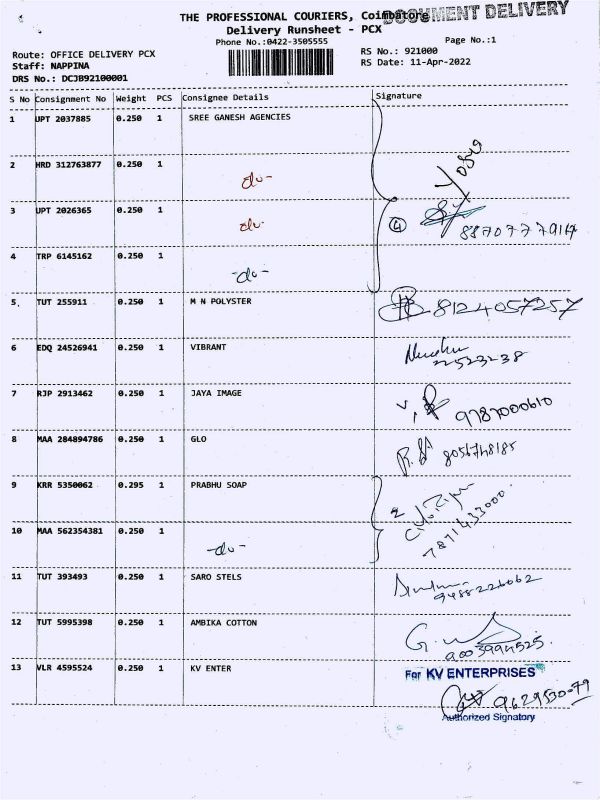 THE PROFESSIONAL COURIERS, Coimbatore
DOCUMENT DELIVERY
Delivery Runsheet - PCX
Phone No.:0422-3505555
Page No.:1
Route: OFFICE DELIVERY PCX
RS No.: 921000
Staff: NAPPINA
RS Date: 11-Apr-2022
DRS No.: DCJB92100001
S No Consignment No Weight PCS Consignee Details Signature
1 UPT 2037885 0.250 1 SREE GANESH AGENCIES
2 HRD 312763877 0.250 1 -do-
3 UPT 2026365 0.250 1 -do-
4 8870777914
4 TRP 6145162 0.250 1 -do-
5 TUT 255911 0.250 1 M N POLYSTER 8124057257
6 EDQ 24526941 0.250 1 VIBRANT
22523238
7 RJP 2913462 0.250 1 JAYA IMAGE 9787000610
8 MAA 284894786 0.250 1 GLO 8056748185
9 KRR 5350062 0.295 1 PRABHU SOAP
2
7871433000
10 MAA 562354381 0.250 1 -do-
11 TUT 393493 0.250 1 SARO STELS
9488226062
12 TUT 5995398 0.250 1 AMBIKA COTTON
9003994525
13 VLR 4595524 0.250 1 KV ENTER For KV ENTERPRISES
9629530079
Authorized Signatory